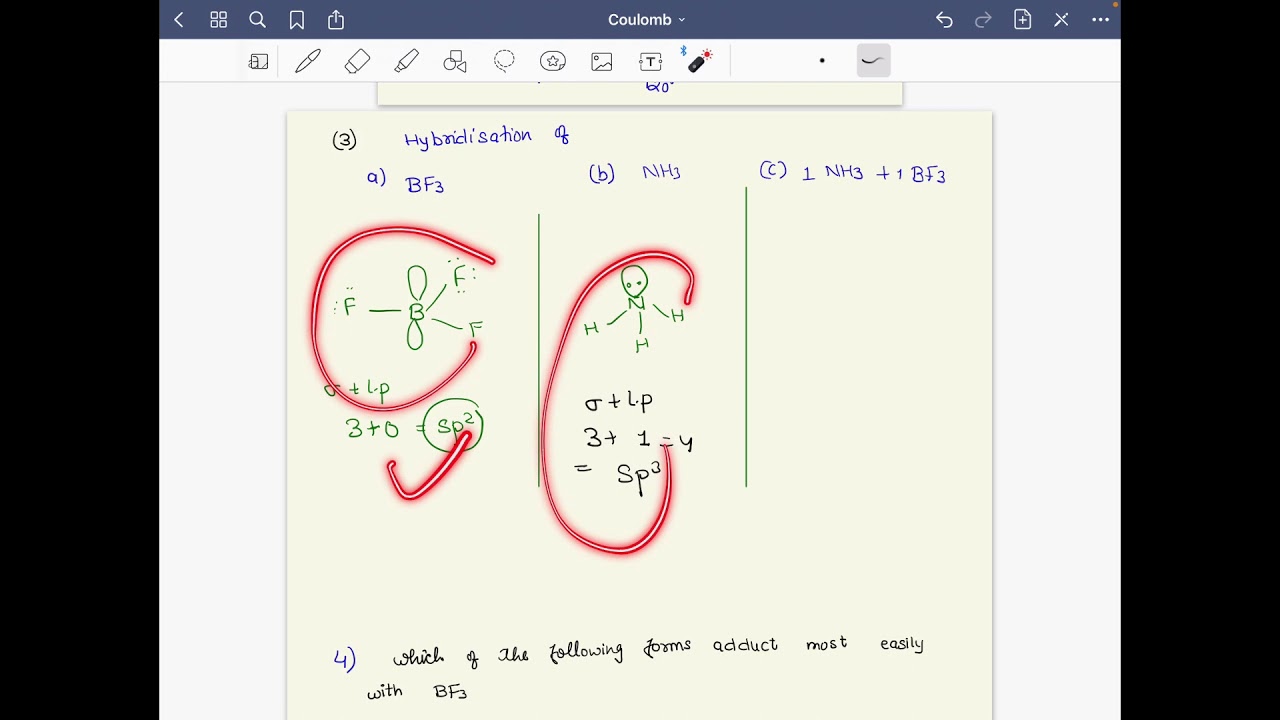 Coulomb
120°
(3) Hybridisation of
a) BF3
(b) NH3
(c) 1 NH3 + 1 BF3
F B F F
σ + l.p
3+0 = sp²
N H H H
σ + l.p
3+ 1 = 4
= Sp³
4) which of the following forms adduct most easily
with BF3